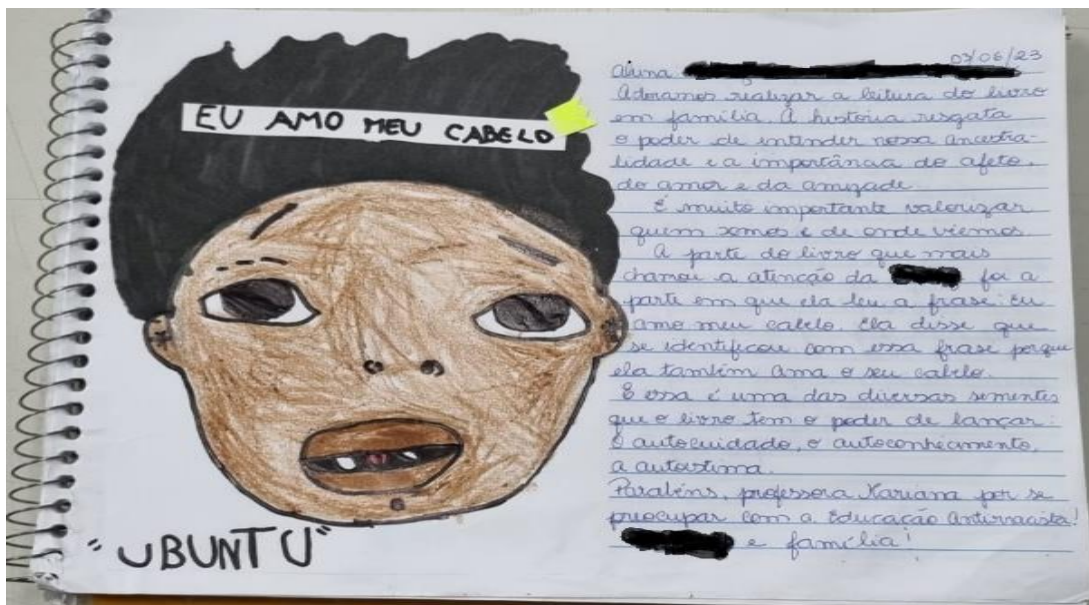 EU AMO MEU CABELO
"UBUNTU"
03/06/23
Aluna
Adoramos realizar a leitura do livro
em família. A história resgata
o poder de entender nossa ancestra-
lidade e a importância do afeto,
do amor e da amizade.
É muito importante valorizar
quem somos e de onde viemos.
A parte do livro que mais
chamou a atenção da foi a
parte em que ela leu a frase: Eu
amo meu cabelo. Ela disse que
se identificou com essa frase porque
ela também ama o seu cabelo.
E essa é uma das diversas sementes
que o livro tem o poder de lançar:
O autocuidado, o autoconhecimento,
a autoestima.
Parabéns, professora Mariana por se
preocupar com a Educação Antirracista!
e família!